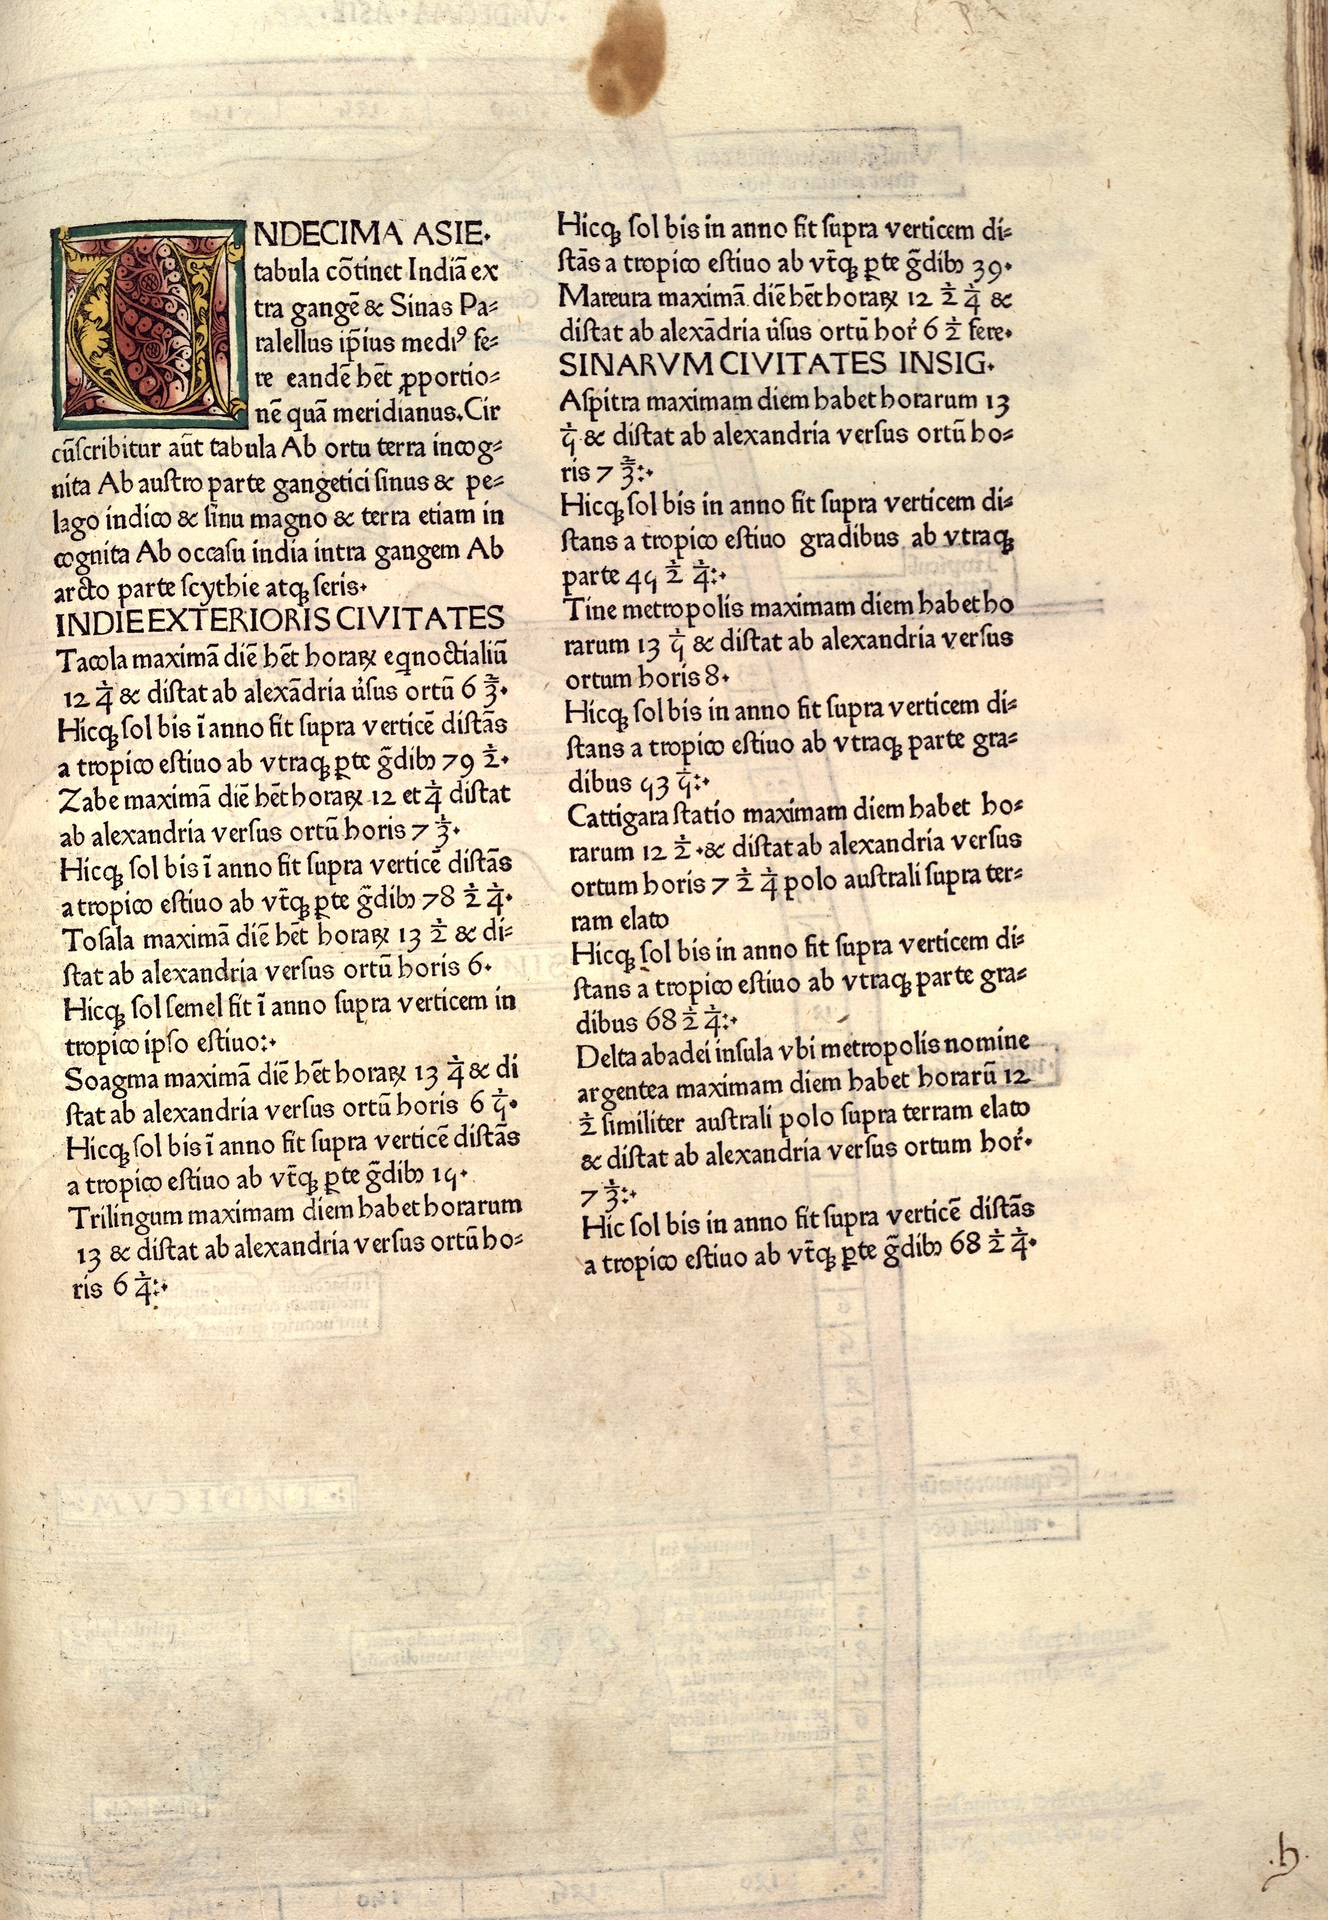 VNDECIMA ASIE·
tabula cōtinet Indiā ex
tra gangē & Sinas Pa⸗
ralellus ip̄ius mediꝰ fe⸗
re eandē hēt ꝓportio⸗
nē quā meridianus.Cir
cūſcribitur aūt tabula Ab ortu terra incog⸗
nita Ab auſtro parte gangetici ſinus & pe⸗
lago indico & ſinu magno & terra etiam in
cognita Ab occaſu india intra gangem Ab
arcto parte ſcythie atqꝫ ſeris·
INDIE EXTERIORIS CIVITATES
Tacola maximā diē hēt horaꝝ eqnoctialiū
12 1/4 & diſtat ab alexādria ūſus ortū 6 2/3·
Hicqꝫ ſol bis ī anno fit ſupra verticē diſtās
a tropico eſtiuo ab vtraqꝫ ꝑte g̃dibꝫ 79 1/2·
Zabe maximā diē hēt horaꝝ 12 et 1/4 diſtat
ab alexandria verſus ortū horis 7 1/3·
Hicqꝫ ſol bis ī anno fit ſupra verticē diſtās
a tropico eſtiuo ab vt̄qꝫ ꝑte g̃dibꝫ 78 1/2 1/4·
Toſala maximā diē hēt horaꝝ 13 1/2 & di⸗
ſtat ab alexandria verſus ortū horis 6·
Hicqꝫ ſol ſemel fit ī anno ſupra verticem in
tropico ipſo eſtiuo:·
Soagma maximā diē hēt horaꝝ 13 1/4 & di
ſtat ab alexandria verſus ortū horis 6 1/5·
Hicqꝫ ſol bis ī anno fit ſupra verticē diſtās
a tropico eſtiuo ab vt̄qꝫ ꝑte g̃dibꝫ 15·
Trilingum maximam diem habet horarum
13 & diſtat ab alexandria verſus ortū ho⸗
ris 6 1/4:·
Hicqꝫ ſol bis in anno fit ſupra verticem di⸗
ſtās a tropico eſtiuo ab vt̄qꝫ ꝑte g̃dibꝫ 39·
Mareura maximā diē hēt horaꝝ 12 1/2 1/4 &
diſtat ab alexādria ūſus ortū hor̄ 6 1/2 fere·
SINARVM CIVITATES INSIG·
Aſpitra maximam diem habet horarum 13
1/5 & diſtat ab alexandria verſus ortū ho⸗
ris 7 2/3:·
Hicqꝫ ſol bis in anno fit ſupra verticem di⸗
ſtans a tropico eſtiuo gradibus ab vtraqꝫ
parte 45 1/2 1/4:·
Tine metropolis maximam diem habet ho
rarum 13 1/5 & diſtat ab alexandria verſus
ortum horis 8·
Hicqꝫ ſol bis in anno fit ſupra verticem di⸗
ſtans a tropico eſtiuo ab vtraqꝫ parte gra⸗
dibus 53 1/5:·
Cattigara ſtatio maximam diem habet ho⸗
rarum 12 1/2 ·& diſtat ab alexandria verſus
ortum horis 7 1/2 1/4 polo auſtrali ſupra ter⸗
ram elato
Hicqꝫ ſol bis in anno fit ſupra verticem di⸗
ſtans a tropico eſtiuo ab vtraqꝫ parte gra⸗
dibus 68 1/2 1/4:·
Delta abadei inſula vbi metropolis nomine
argentea maximam diem habet horarū 12
1/2 ſimiliter auſtrali polo ſupra terram elato
& diſtat ab alexandria verſus ortum hor̄·
7 1/3:·
Hic ſol bis in anno fit ſupra verticē diſtās
a tropico eſtiuo ab vt̄qꝫ ꝑte g̃dibꝫ 68 1/2 1/4·
·h·